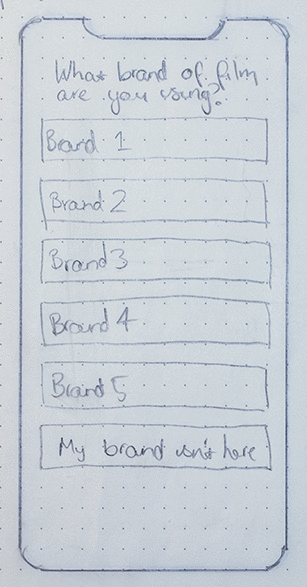 What brand of film
are you using?
Brand 1
Brand 2
Brand 3
Brand 4
Brand 5
My brand isn't here